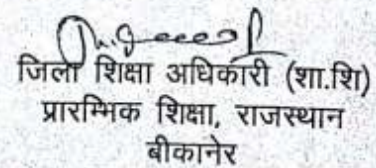 जिला शिक्षा अधिकारी (शा.शि)
प्रारम्भिक शिक्षा, राजस्थान
बीकानेर